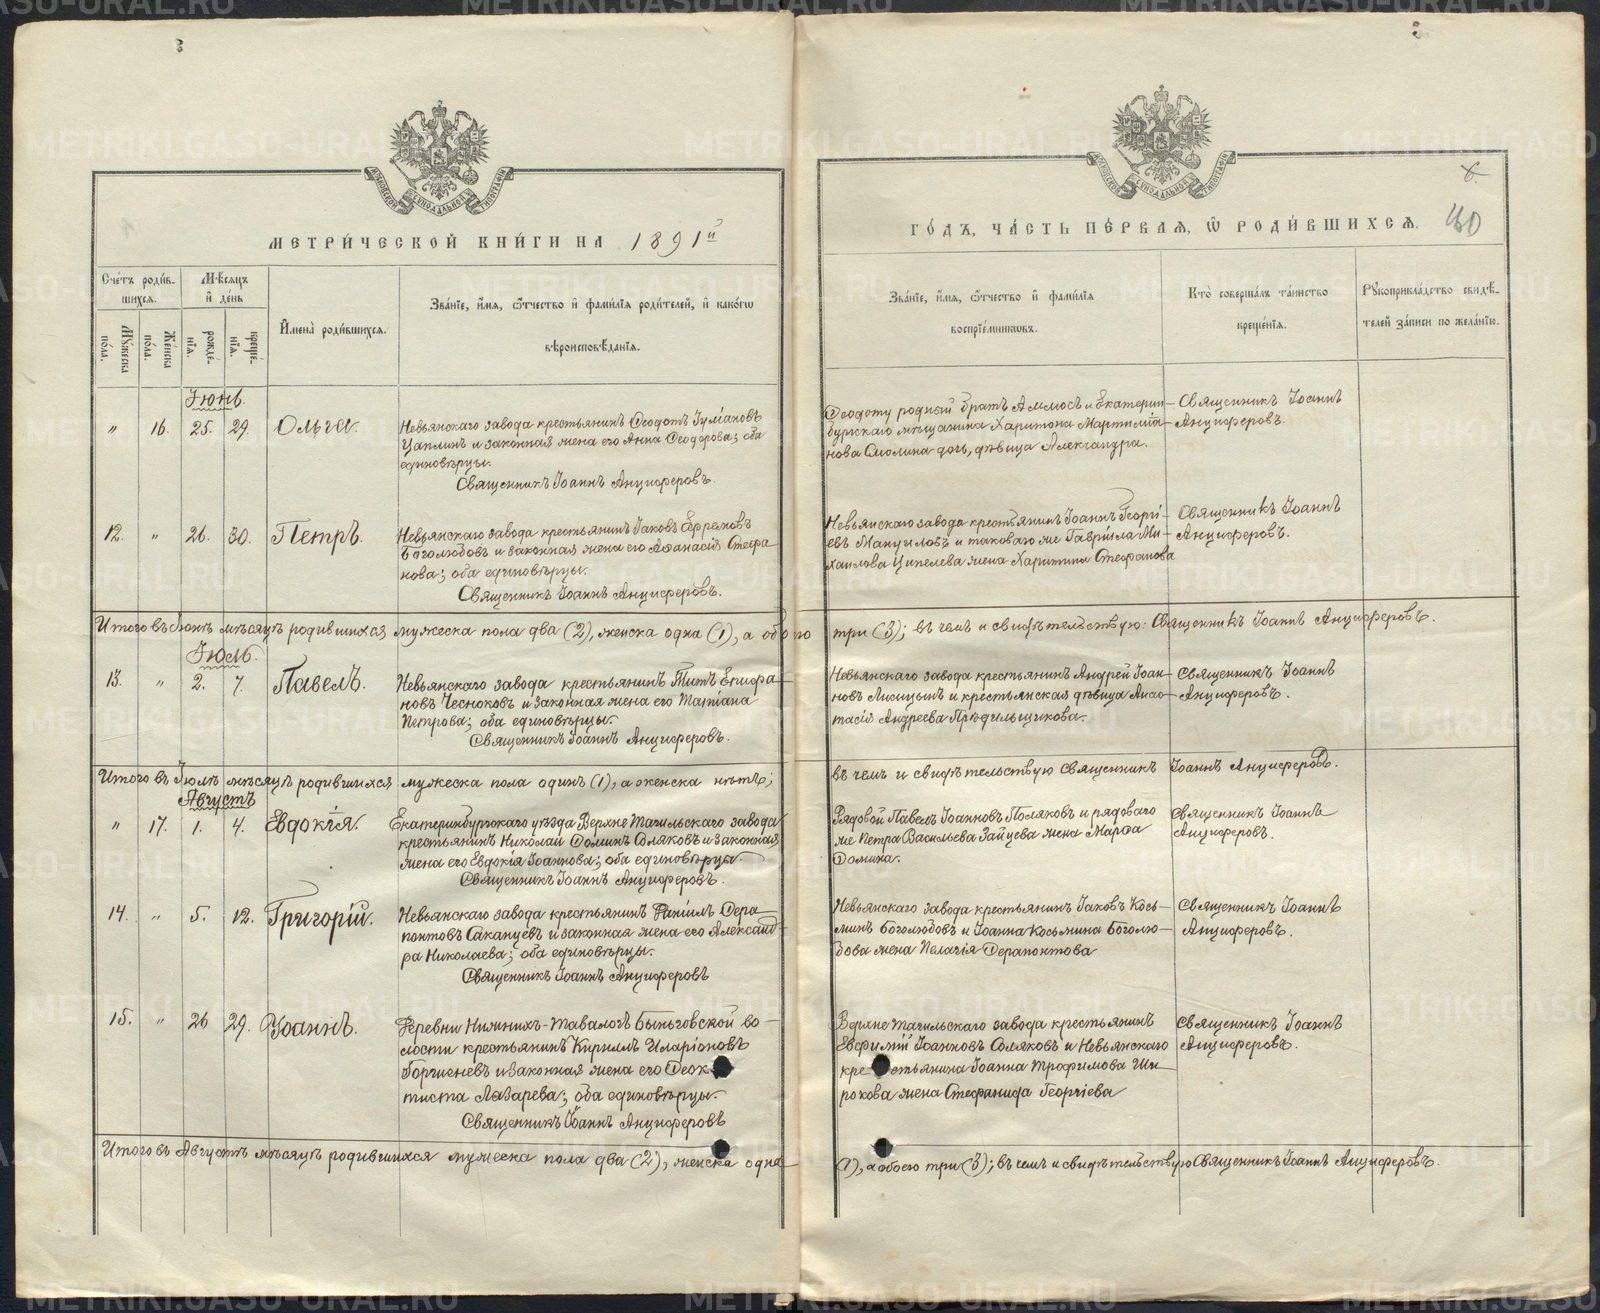 МЕТРИ́ЧЕСКОЙ КНИ́ГИ НА 1891й
Сче́тъ роди́в-
шихся.
Мѣ́сяцъ
и҆ де́нь
Мꙋ́жеска
по́ла.
Же́нска
по́ла.
рожде́-
нїѧ.
креще́-
нїѧ.
И҆мена̀ роди́вшихсѧ.
Зва́нїе, и҆́мѧ, ѻ҆́тчество и҆ фами́лїѧ роди́телей, и҆ како́гѡ
вѣроисповѣ́данїѧ.
Іюнь.
" 16. 25. 29. Ольга.
Невьянскаго завода крестьянинъ Ѳеодотъ
Цаплинъ и законная жена его Анна Ѳеодорова; оба
единовѣрцы.
Священникъ Іоаннъ Анциферовъ.
12. " 26. 30. Петръ.
Невьянскаго завода крестьянинъ Іаковъ Ефремовъ
Боголюбовъ и законная жена его Аѳанасія Стефа
нова; оба единовѣрцы.
Священникъ Іоаннъ Анциферовъ.
Итого въ Іюнѣ мѣсяцѣ родившихся мужеска пола два (2), женска одна (1), а обоего
Іюль.
13. " 2. 7. Павелъ.
Невьянскаго завода крестьянинъ Титъ Епифа-
новъ Чесноковъ и законная жена его Татіана
Петрова; оба единовѣрцы.
Священникъ Іоаннъ Анциферовъ.
Итого въ Іюлѣ мѣсяцѣ родившихся мужеска пола одинъ (1), а женска нѣтъ;
Августъ
" 17. 1. 4. Евдокія.
Екатеринбургскаго уѣзда Верхне Тагильскаго завода
крестьянинъ Николай Ѳоминъ Соляковъ и законная
жена его Евдокія Іоаннова; оба единовѣрцы.
Священникъ Іоаннъ Анциферовъ.
14. " 5. 12. Григорій.
Невьянскаго завода крестьянинъ Даніилъ Ѳера-
понтовъ Саканцевъ и законная жена его Александ-
ра Николаева; оба единовѣрцы.
Священникъ Іоаннъ Анциферовъ
15. " 26 29. Іоаннъ.
Деревни Нижнихъ-Тавологъ Быньговской во-
лости крестьянинъ Кириллъ Иларіоновъ
и законная жена его Ѳеок
тиста Лазарева; оба единовѣрцы.
Священникъ Іоаннъ Анциферовъ
Итого въ Августѣ мѣсяцѣ родившихся мужеска пола два (2), женска одна
ГО́ДЪ, ЧА́СТЬ ПЕ́РВАѦ, Ѡ҆ РОДИ́ВШИХСѦ.
6.
40
Зва́нїе, и҆́мѧ, ѻ҆́тчество и҆ фами́лїѧ
воспрїе́мникѡвъ.
Кто̀ соверша́лъ та́инство
креще́нїѧ.
Рꙋкоприкла́дство свидѣ́-
телей за́писи по жела́нїю.
Ѳеодоту родной братъ Аммосъ и Екатерин-
бургскаго мѣщанина Харитона Мартиніа-
нова Смолина дочь, дѣвица Александра.
Священникъ Іоаннъ
Анциферовъ.
Невьянскаго завода крестьянинъ Іоаннъ Георгі-
евъ Мануиловъ и таковаго же Гавріила Ми-
хаилова Ципелева жена Харитина Стефанова
Священникъ Іоаннъ
Анциферовъ.
три (3); въ чемъ и свидѣтельствую: Священникъ Іоаннъ Анциферовъ.
Невьянскаго завода крестьянинъ Андрей Іоан-
новъ Лисицынъ и крестьянская дѣвица Анас-
тасія Андреева Прядильщикова.
Священникъ Іоаннъ
Анциферовъ.
въ чемъ и свидѣтельствую Священникъ Іоаннъ Анциферовъ.
Рядовой Павелъ Іоанновъ Поляковъ и рядоваго
же Петра Васильева Зайцева жена Марѳа
Ѳомина.
Священникъ Іоаннъ
Анциферовъ.
Невьянскаго завода крестьянинъ Іаковъ Кось-
минъ Боголюбовъ и Іоанна Косьмина Боголю-
бова жена Пелагія Ѳерапонтова
Священникъ Іоаннъ
Анциферовъ.
Верхне Тагильскаго завода крестьянинъ
Евфимій Іоанновъ Соляковъ и Невьянскаго
крестьянина Іоанна Трофимова Ши-
рокова жена Стефанида Георгіева
Священникъ Іоаннъ
Анциферовъ.
(1), а обоего три (3); въ чемъ и свидѣтельствую Священникъ Іоаннъ Анциферовъ.
METRIKI.GASO-URAL.RU